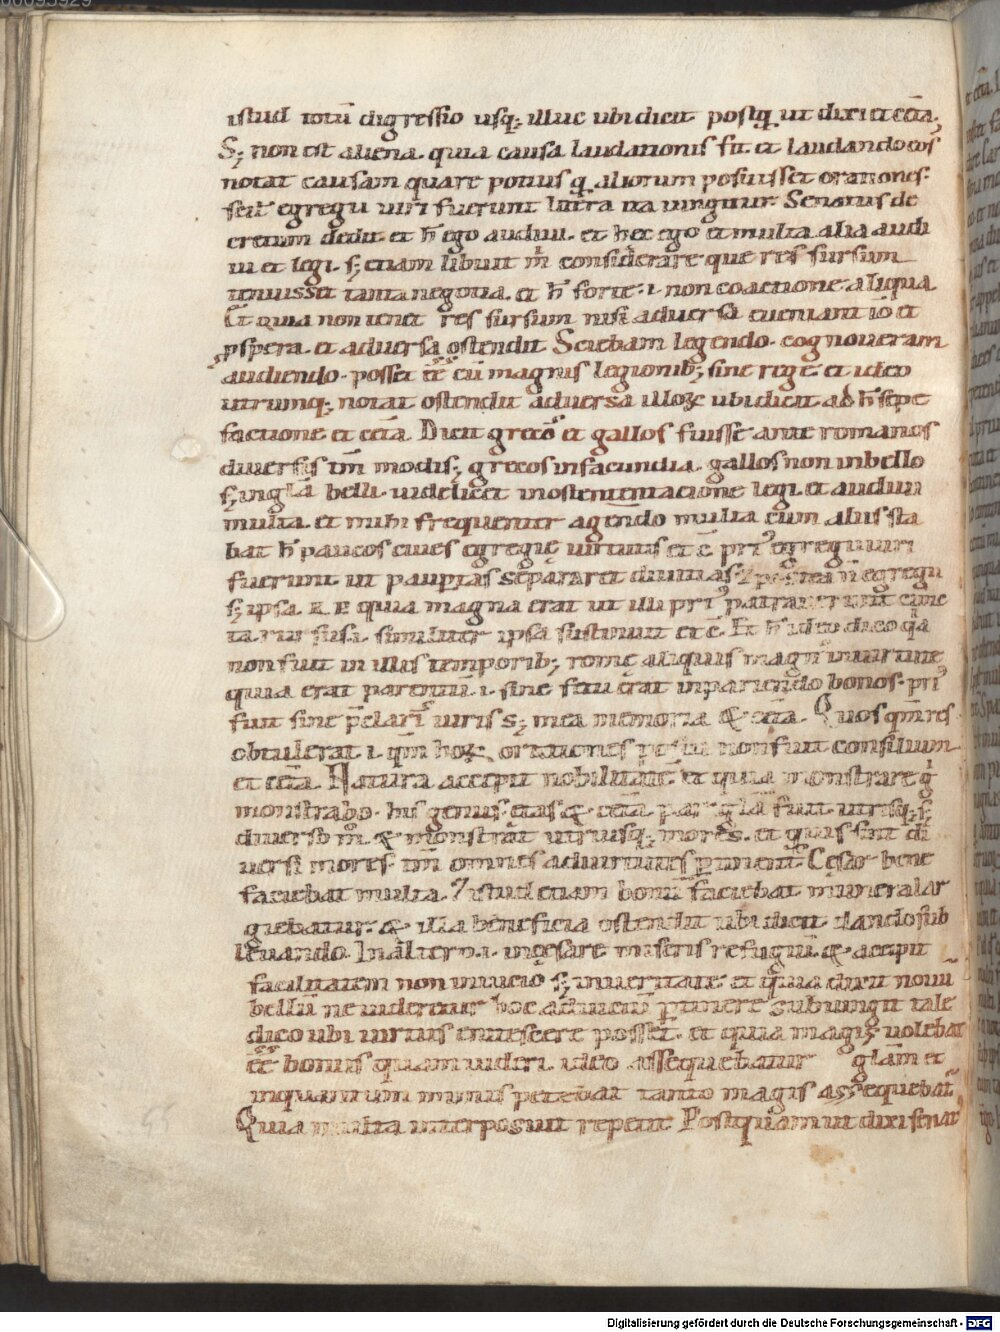 00095929
istud totū digressio usq; illuc ubi dicit postq̄ ut dixi et cēta.
S; non est aliena. quia causa laudationis fit. et laudando eos
notat causam quare potius q̄ aliorum posuisset orationes.
egregii uiri fuerunt ita iungitur Senatus de
cretum dedit. et h̄ ego audiui. et hec ego et multa alia audi
ui et legi. s; etiam libuit m̄ considerare que res sursum
tenuisset tanta negotia. et h̄ forte. i. non coactione aliqua
Et quia non tenet res sursum nisi aduersa eueniant iō et
p̄spera. et aduersa ostendit. Sciebam legendo. cognoueram
audiendo. posset eē cū magnis legionib; sine rege et ideo
utrumq; notat ostendit aduersa illoꝝ ubi dicit ad h̄ sepe
factione et cēta. Dicit grecos et gallos fuisse ante romanos
diuersis tm̄ modis; grecos in facundia. gallos non in bello
s; in gl̄a belli. uidelicet in ostentacione legi. et audiui
multa. et mihi frequenter agendo multa cum aliis sta
bat h̄ paucos ciues egregię uirtutis et c̄. pri᷒ egregii uiri
fuerunt ut paup̄tas separaret diuitias. postea n̄ egregii
s; ipsa R. P. quia magna erat ut illi pri᷒ patrauerunt cunc
ta. rursus. i. similiter ipsa sustinuit et c̄. Et h̄ ideo dico q̄a
non fuit in illis temporib; romę aliquis magn᷒ uirtute
quia erat parentū. i. sine fetu erat in pariendo bonos. pri᷒
fuit sine p̄claris uiris s; mea memoria & cēta. Quos qm̄ res
obtulerat. i. qm̄ hoꝝ orationes posui non fuit consilium
et cēta. Natura accepit nobilitatē et quia monstrare
monstrabo. his genus. etas & cēta. par gl̄a fuit utrisq; s;
diuerso m̄. & monstrat utriusq; mores. et quis sint di
uersi mores. tm̄ omnes ad uirtutes p̄tinent. Cesar bene
faciebat multa. 7 istud etiam bonū faciebat munera lar
giebatur. & illa beneficia ostendit ubi dicit dando sub
leuando. In altero. i. in cesare miseris refugiū. & accepit
facilitatem non in uicio s; in ueritate. et quia dixit nouū
bellū ne uideretur hoc ad uiciū p̄tinere subiungit tale
dico ubi uirtus enitescere posset. et quia magis uolebat
eē bonus quam uideri. ideo assequebatur gl̄am et
inquantum minus petebat tanto magis assequebat᷒
Quia multa interposuit repetit Postquam ut dixi senat᷒
55
Digitalisierung gefördert durch die Deutsche Forschungsgemeinschaft - DFG